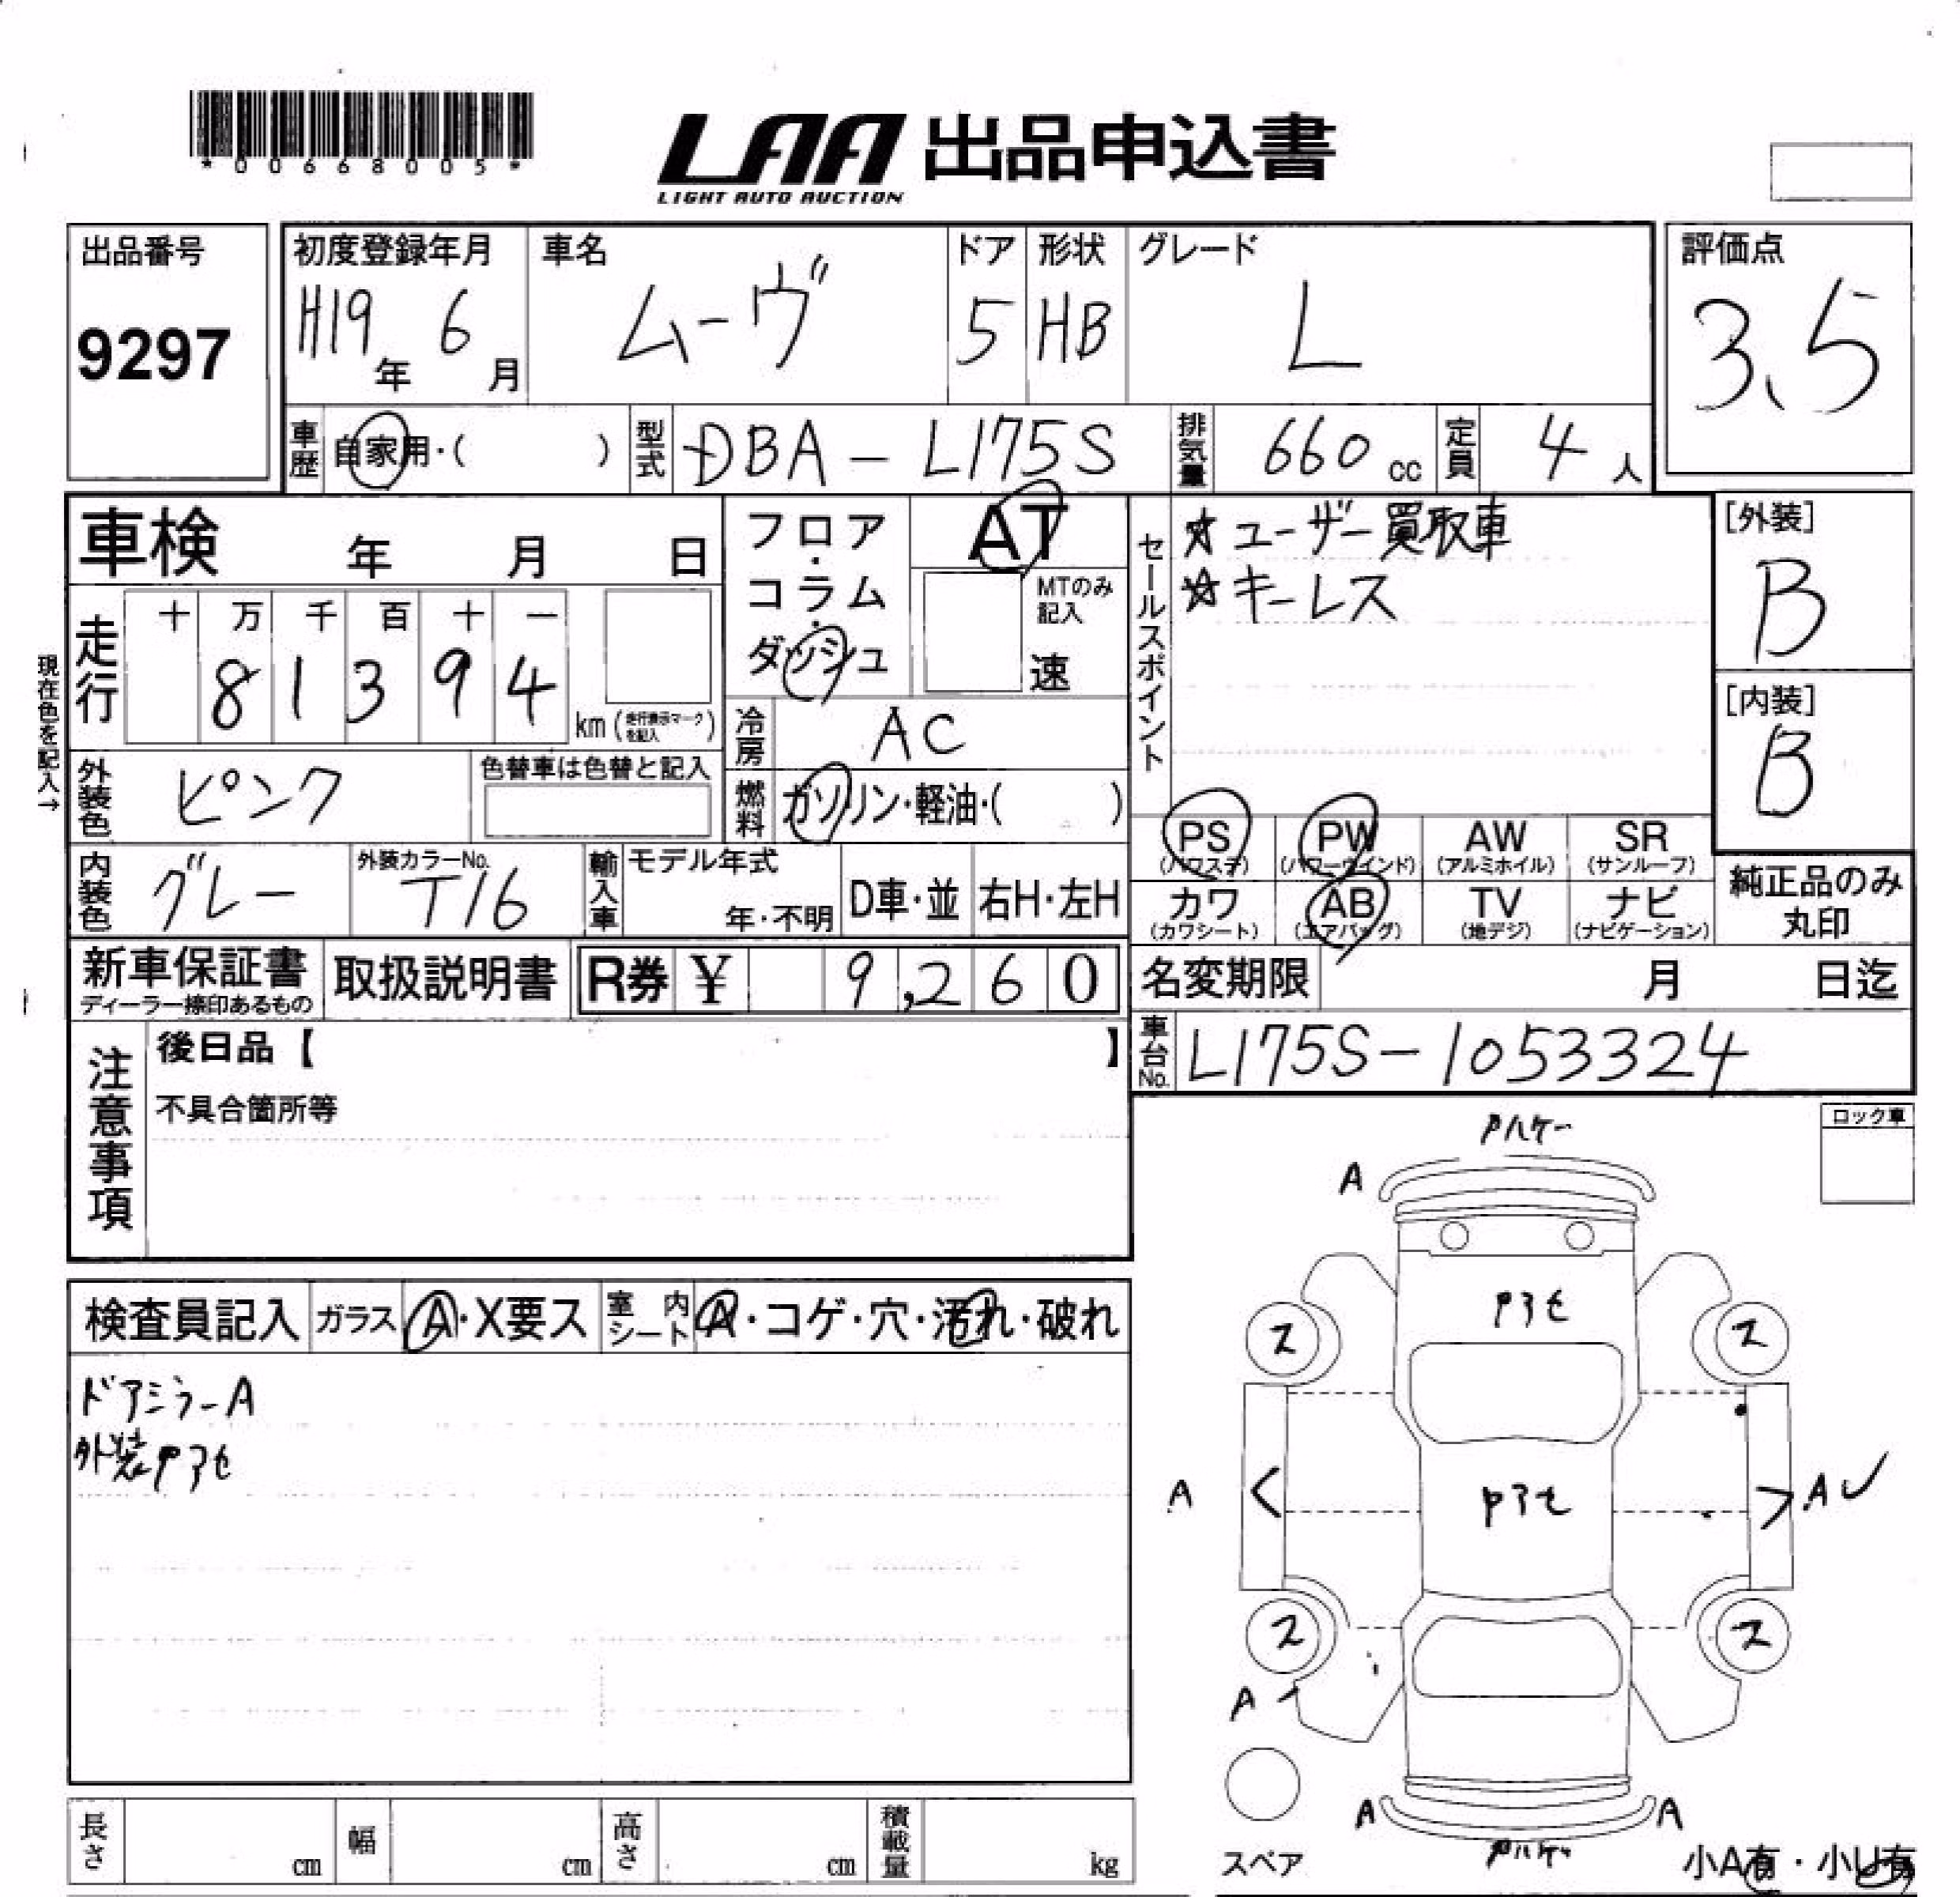 *00668005*
LAA 出品申込書
LIGHT AUTO AUCTION
出品番号
9297
初度登録年月
H19年 6月
車名
ムーヴ
ドア
5
形状
HB
グレード
L
評価点
3.5
車歴 自家用・( )
型式 DBA-L175S
排気量 660 cc
定員 4人
車検 年 月 日
フロア・コラム・ダッシュ
AT
MTのみ記入
速
セールスポイント
☆ユーザー買取車
☆キーレス
[外装]
B
[内装]
B
現在色を記入→
走行
十 万 千 百 十 一
8 1 3 9 4
km (走行表示マークを記入)
冷房 AC
燃料 ガソリン・軽油・( )
外装色 ピンク
色替車は色替と記入
内装色 グレー
外装カラーNo.
T16
輸入車
モデル年式
年・不明
D車・並
右H・左H
PS (パワステ)
PW (パワーウインド)
AW (アルミホイル)
SR (サンルーフ)
カワ (カワシート)
AB (エアバッグ)
TV (地デジ)
ナビ (ナビゲーション)
純正品のみ丸印
新車保証書
ディーラー捺印あるもの
取扱説明書
R券 ¥ 9,260
名変期限 月 日迄
車台No. L175S-1053324
注意事項
後日品【 】
不具合箇所等
ロック車
検査員記入
ガラス A・X要ス
室内シート A・コゲ・穴・汚れ・破れ
ドアミラーA
外装
A
ス ス
A < > A
ス ス
A
A A
スペア
小A有・小U有
長さ cm
幅 cm
高さ cm
積載量 kg